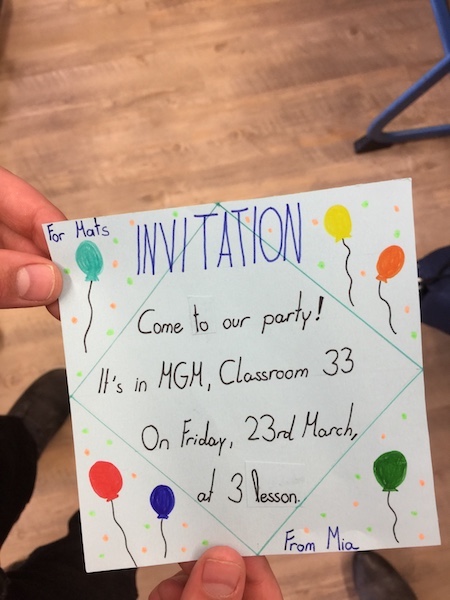 For Mats
INVITATION
Come to our party!
It's in MGM, Classroom 33
On Friday, 23rd March,
at 3 lesson.
From Mia